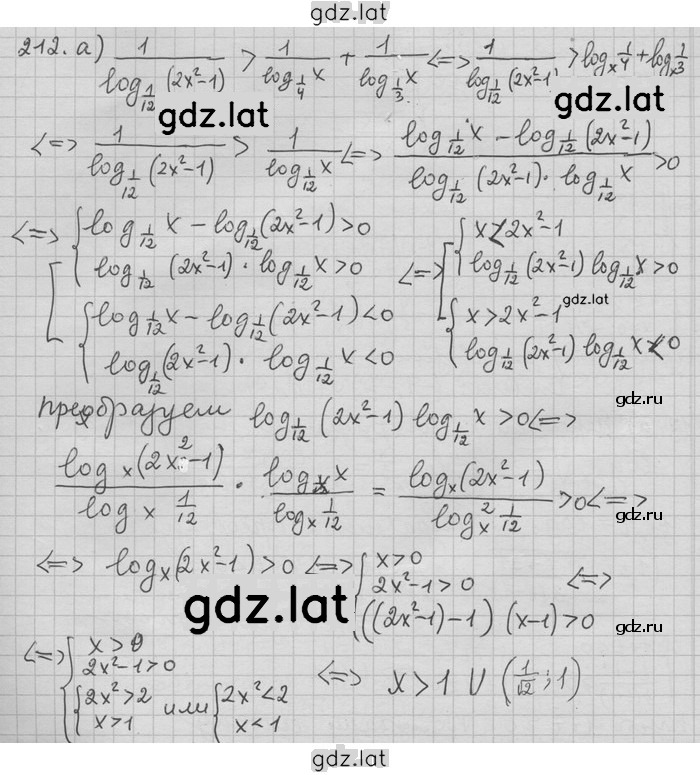 gdz.lat
212. а) 1/log_{1/12}(2x²-1) > 1/log_{1/4}x + 1/log_{1/3}x <=> 1/log_{1/12}(2x²-1) > log_x 1/4 + log_x 1/3
gdz.lat
gdz.lat
<=> 1/log_{1/12}(2x²-1) > 1/log_{1/12}x <=> (log_{1/12}x - log_{1/12}(2x²-1))/(log_{1/12}(2x²-1)·log_{1/12}x) > 0
<=> [ { log_{1/12}x - log_{1/12}(2x²-1) > 0
log_{1/12}(2x²-1)·log_{1/12}x > 0
{ log_{1/12}x - log_{1/12}(2x²-1) < 0
log_{1/12}(2x²-1)·log_{1/12}x < 0
<=> [ { x < 2x²-1
log_{1/12}(2x²-1) log_{1/12}x > 0
gdz.lat
{ x > 2x²-1
log_{1/12}(2x²-1) log_{1/12}x < 0
преобразуем log_{1/12}(2x²-1) log_{1/12}x > 0 <=>
gdz.ru
log_x(2x²-1)/log_x 1/12 · log_x x/log_x 1/12 = log_x(2x²-1)/log_x² 1/12 > 0 <=>
gdz.ru
<=> log_x(2x²-1) > 0 <=> { x > 0
2x²-1 > 0
((2x²-1)-1)(x-1) > 0
<=>
gdz.lat
gdz.ru
<=> { x > 0
2x²-1 > 0
{ 2x² > 2
x > 1
или { 2x² < 2
x < 1
<=> x > 1 U (1/√2; 1)
gdz.lat